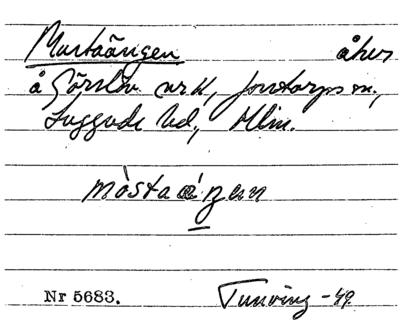 Mustaängen åker
å Sörslöv nr 4, Jonstorps sn,
Luggude hd, Mlm.
mòstaäŋen
Nr 5683. Tunving -49.